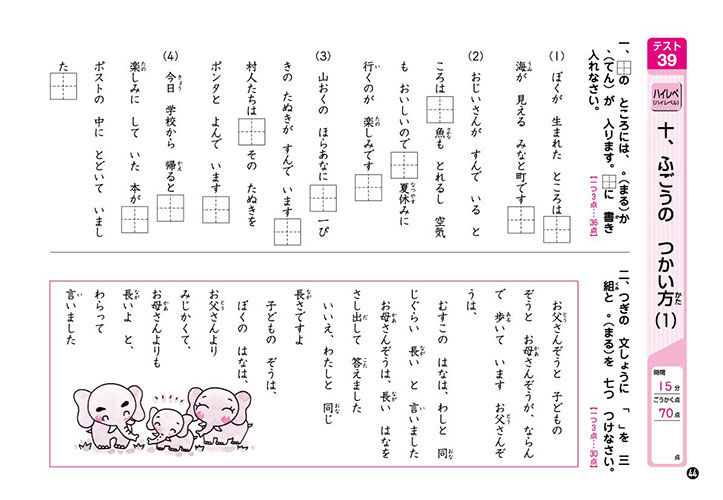 テスト
39
ハイレベ
(ハイレベル)
十、ふごうの つかい方(1)
かた
時間
15分
ごうかく点
70点
点
一、□の ところには、。(まる)か
、(てん)が 入ります。□に 書き
入れなさい。
【一つ3点…36点】
(1) ぼくが 生まれた ところは□
海が 見える みなと町です□
(2) おじいさんが すんで いる と
ころは□魚も とれるし 空気
も おいしいので□夏休みに
行くのが 楽しみです□
(3) 山おくの ほらあなに□一ぴ
きの たぬきが すんで います□
村人たちは□その たぬきを
ポンタと よんで います□
(4) 今日 学校から 帰ると□
楽しみに して いた 本が□
ポストの 中に とどいて いまし
た□
二、つぎの 文しょうに 「 」を 三
組と 。(まる)を 七つ つけなさい。
【一つ3点…30点】
お父さんぞうと 子どもの
ぞうと お母さんぞうが、ならん
で 歩いて います お父さんぞ
うは、
むすこの はなは、わしと 同
じぐらい 長い と 言いました
お母さんぞうは、長い はなを
さし出して 答えました
いいえ、わたしと 同じ
長さですよ
子どもの ぞうは、
ぼくの はなは、
お父さんより
みじかくて、
お母さんよりも
長いよ と、
わらって
言いました
44